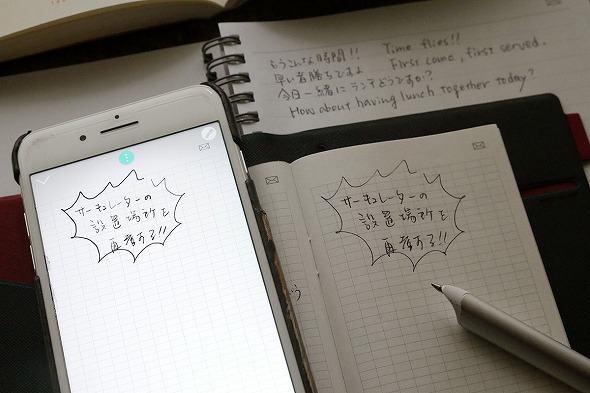 もうこんな時間!! Time flies!!
早い者勝ちですよ First come, first served.
今日一緒にランチどうですか?
How about having lunch together today?
サーキュレーターの
設置場所を
再考する!!
サーキュレーターの
設置場所を
再考する!!